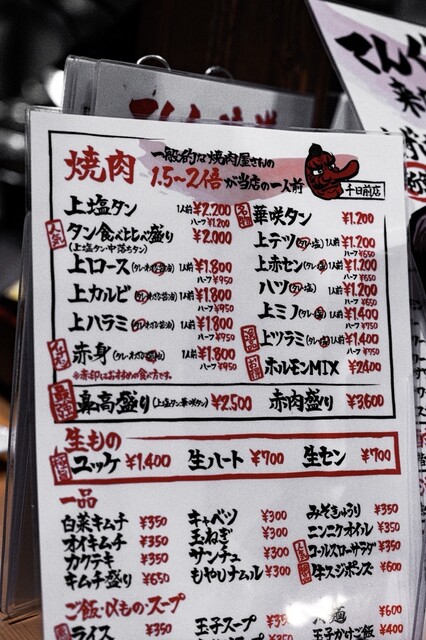 焼肉
一般的な焼肉屋さんの
1.5〜2倍が当店の一人前
千日前店
上塩タン 1人前 ¥2,200
人気 タン食べ比べ盛り ¥2,000
(上塩タン・中落ちタン)
上ロース 1人前 ¥1,800
ハーフ ¥950
上カルビ 1人前 ¥1,800
ハーフ ¥950
上ハラミ 1人前 ¥1,800
ハーフ ¥950
赤身 1人前 ¥1,800
ハーフ ¥950
名物 華咲タン ¥1,200
上テツ 1人前 ¥1,200
ハーフ ¥650
上赤セン 1人前 ¥1,200
ハーフ ¥650
ハツ 1人前 ¥1,200
ハーフ ¥650
上ミノ 1人前 ¥1,400
ハーフ ¥750
上ツラミ 1人前 ¥1,400
ハーフ ¥750
ホルモンMIX ¥2400
最高盛り(上塩タン・華咲タン) ¥2,500
赤肉盛り ¥3,600
生もの
ユッケ ¥1,400
生ハート ¥700
生セン ¥700
一品
白菜キムチ ¥350
オイキムチ ¥350
カクテキ ¥350
キムチ盛り ¥650
キャベツ ¥300
玉ねぎ ¥300
サンチュ ¥300
もやしナムル ¥300
みそきゅうり ¥350
ニンニクオイル ¥350
人気 コールスローサラダ ¥350
牛スジポンズ ¥600
ご飯・αもの・スープ
ライス ¥350
玉子スープ ¥35
麺 ¥600
玉子かけご飯 ¥400